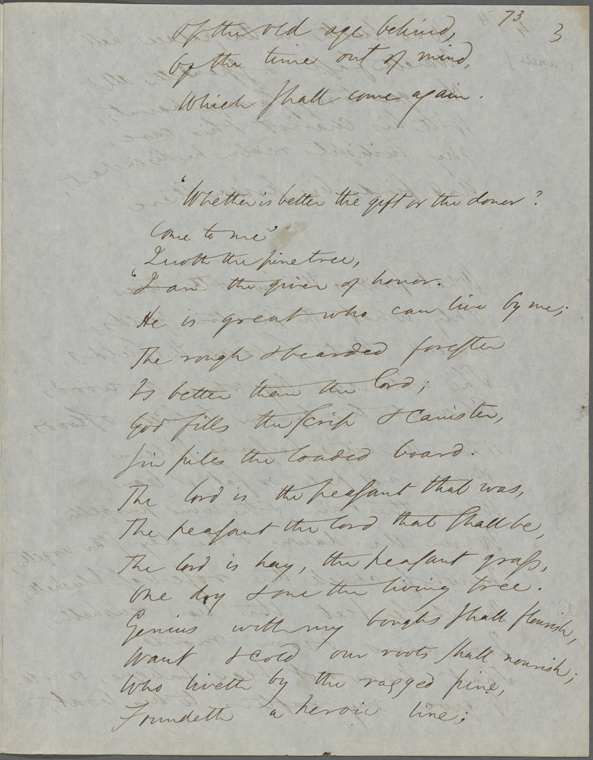 73
3
Of the old age behind,
Of the time out of mind,
Which shall come again.
'Whether is better the gift or the donor?
Come to me'
Quoth the pine tree,
'I am the giver of honor.
He is great who can live by me;
The rough & bearded forester
Is better than the lord;
God fills the scrip & canister,
Sin piles the loaded board.
The lord is the peasant that was,
The peasant the lord that shall be,
The lord is hay, the peasant grass,
One dry & one the living tree.
Genius with my boughs shall flourish,
Want & cold our roots shall nourish;
Who liveth by the ragged pine,
Foundeth a heroic line;